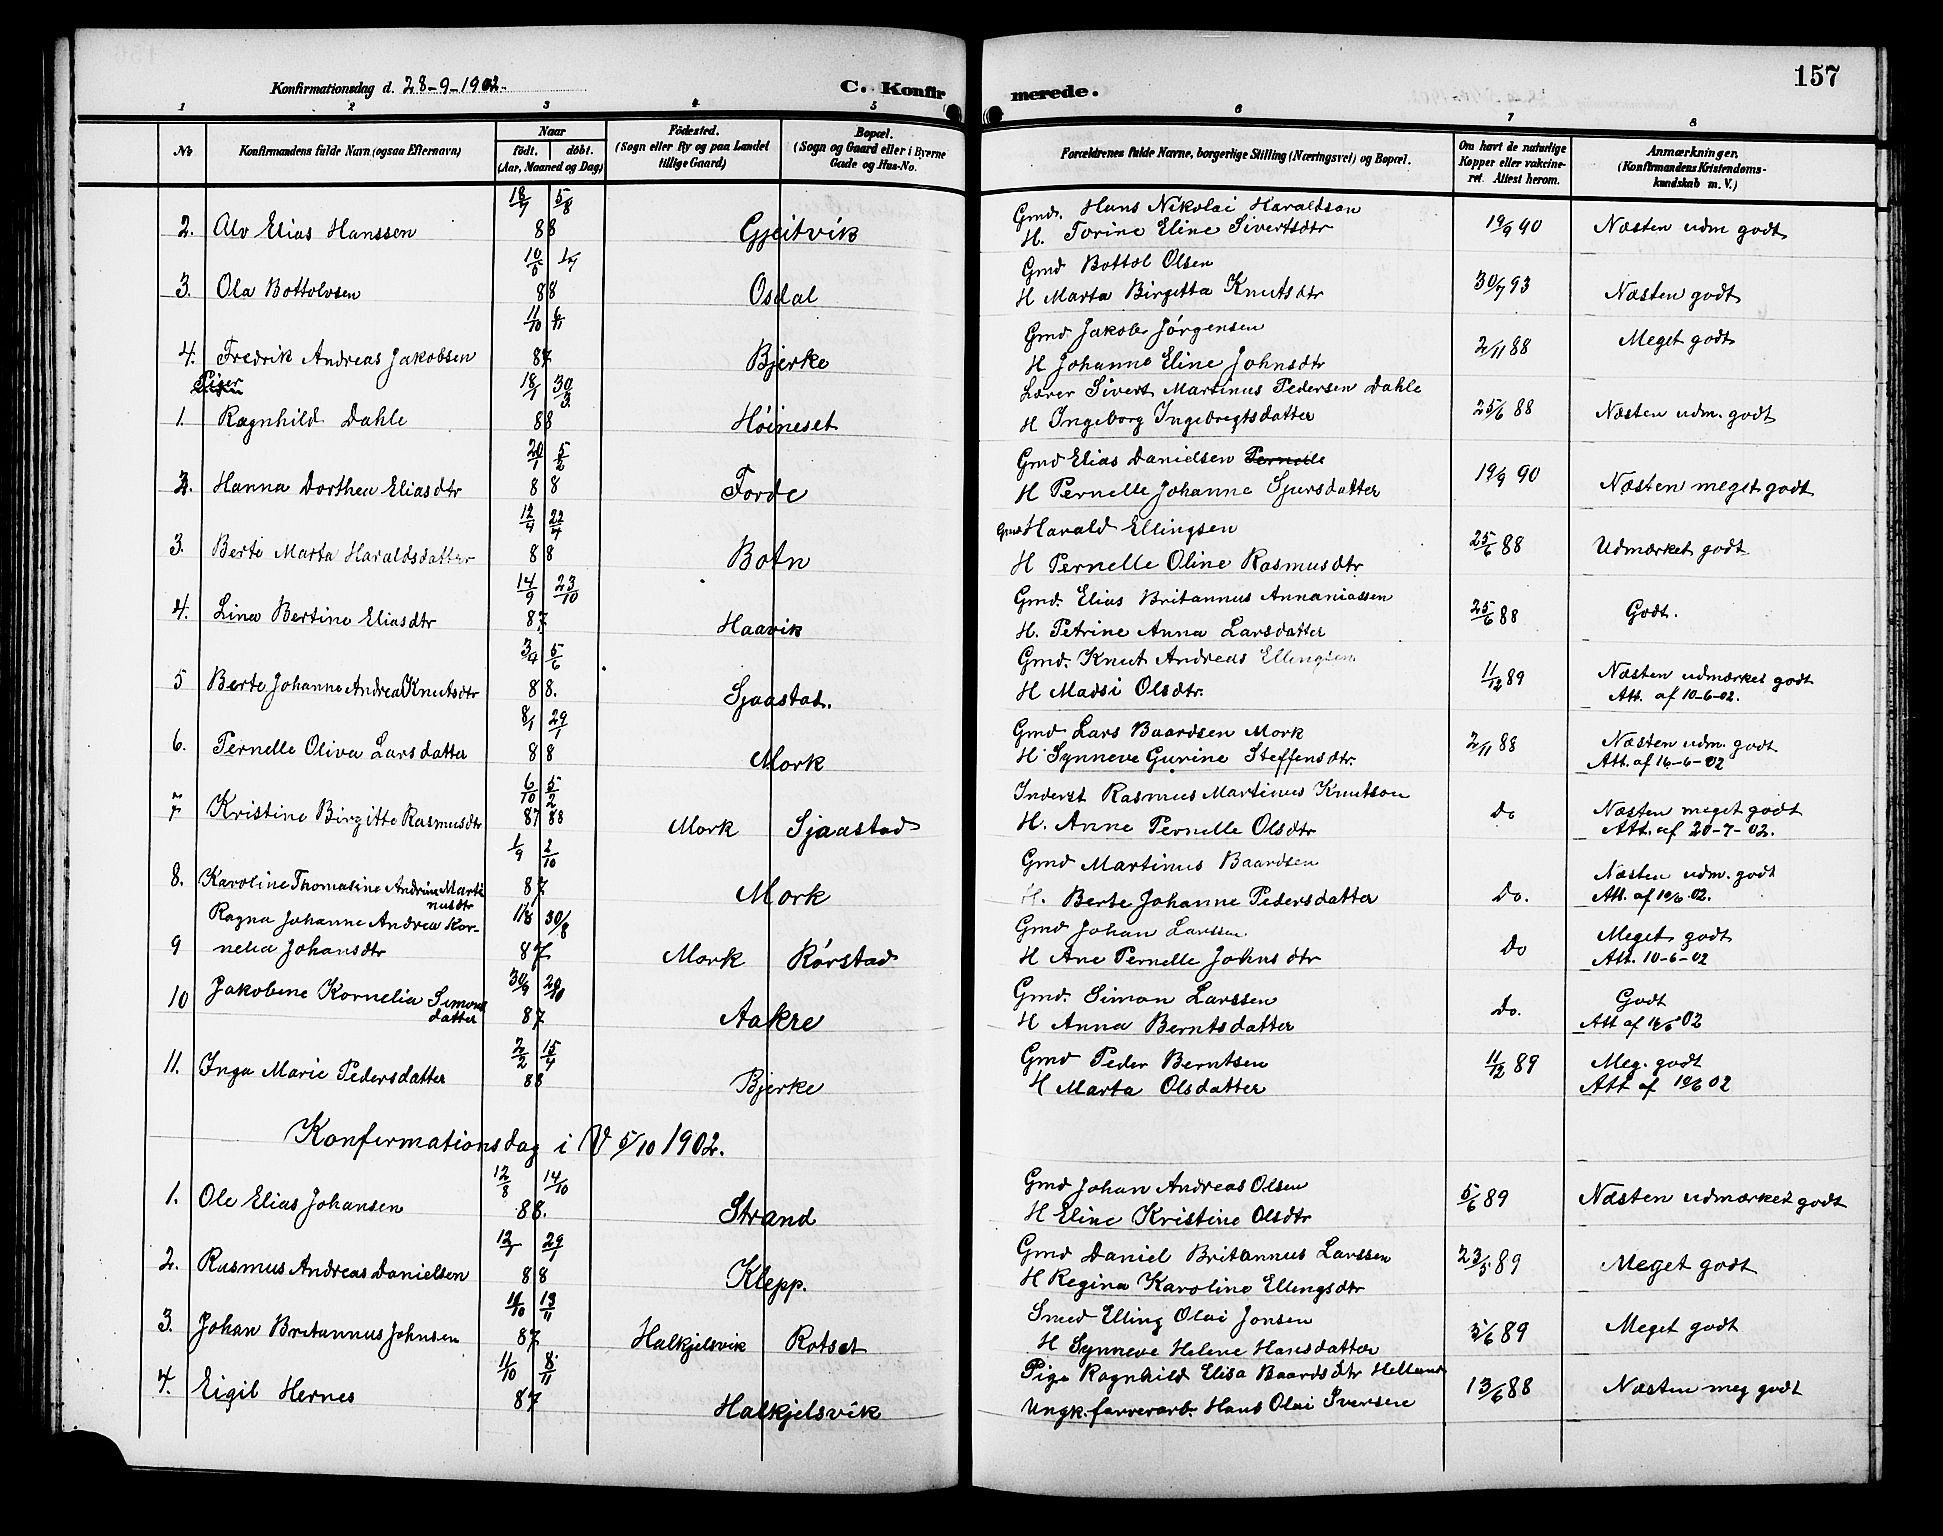 157
Konfirmationsdag d. 28-9-1902.
C. Konfirmerede.
1 2 3 4 5 6 7 8
No
Konfirmandens fulde Navn (ogsaa Efternavn)
Naar
födt. döbt.
(Aar, Maaned og Dag)
Födested.
(Sogn eller By og paa Landet
tillige Gaard)
Bopæl.
(Sogn og Gaard eller i Byerne
Gade og Hus-No.
Forældrenes fulde Navne, borgerlige Stilling (Næringsvei) og Bopæl.
Om havt de naturlige
Kopper eller vakcine-
ret. Attest herom.
Anmærkninger.
(Konfirmandens Kristendoms-
kundskab m. V.)
18/7 5/8 Gmd. Hans Nikolai Haraldson
2. Alv Elias Hanssen 88 Gjeitvik H. Torine Eline Sivertsdtr 19/9 90 Næsten udm godt
10/5 1/7 Gmd Bottol Olsen
3. Ola Bottolvsen 88 Osdal H Marta Birgitta Knutsdtr 30/7 93 Næsten godt
11/10 6/11 Gmd Jakob Jørgensen
4. Fredrik Andreas Jakobsen 87 Bjerke H Johanne Eline Johnsdtr 2/11 88 Meget godt
Piger
18/1 30/3 Lærer Sivert Martinus Pedersen Dahle
1. Ragnhild Dahle 88 Høineset H Ingeborg Ingebregtsdatter 25/6 88 Næsten udm. godt
20/1 5/2 Gmd Elias Danielsen Pernelle
2. Hanna Dorthea Eliasdtr 88 Forde H Pernelle Johanne Sjursdatter 19/9 90 Næsten meget godt
12/4 22/4 Gmd Harald Ellingsen
3. Berte Marta Haraldsdatter 88 Botn H Pernelle Oline Rasmusdtr 25/6 88 Udmærket godt
14/9 23/10 Gmd. Elias Britannus Annaniassen
4. Lina Bertine Eliasdtr 87 Haavik H. Petrine Anna Larsdatter 25/6 88 Godt.
3/4 5/6 Gmd. Knut Andreas Ellingsen
5 Berte Johanne Andrea Knutsdtr 88. Sjaastad. H Madsi Olsdtr. 11/12 89 Næsten udmærket godt
Att. af 10-6-02.
8/1 29/1 Gmd Lars Baardsen Mork
6. Pernelle Oliva Larsdatter 88 Mork H Synneve Gurine Steffensdtr. 2/11 88 Næsten udm. godt
Att. af 16-6-02
6/10 5/2 Inderst Rasmus Martinus Knutson
7 Kristine Birgitte Rasmusdtr 87 88 Mork Sjaastad H. Anne Pernelle Olsdtr Do Næsten meget godt
Att. af 20-7-02.
1/9 2/10 Gmd Martinus Baardsen
8. Karoline Thomasine Andrine Marti 87 Mork H. Berte Johanne Pedersdatter Do. Næsten udm. godt
nusdtr Att. af 10/6 02.
Ragna Johanne Andrea Kor- 11/8 30/8 Gmd Johan Larssen
9 nelia Johansdtr 87 Mork Rørstad H Ane Pernelle Johnsdtr Do Meget godt
Att. 10-6-02
10 Jakobine Kornelia Simons 30/9 20/10 Gmd. Simon Larssen
datter 87 Aakre H Anna Berntsdatter Do. Godt
Att af 16/6 02
2/2 15/4 Gmd Peder Berntsen
11. Inga Marie Pedersdatter 88 Bjerke H Marta Olsdatter 11/12 89 Meg. godt
Att af 10/6 02
Konfirmationsdag i V 5/10 1902.
12/8 14/10 Gmd Johan Andreas Olsen
1. Ole Elias Johansen 88. Strand H Eline Kristine Olsdtr 5/6 89 Næsten udmærket godt
12/1 29/1 Gmd Daniel Britannus Larssen
2. Rasmus Andreas Danielsen 88 Klepp. H Regina Karoline Ellingsdtr 23/5 89 Meget godt
11/10 13/11 Smed Elling Olai Jonsen
3. Johan Britannus Johnsen 87 Halkjelsvik Rotset H Synneve Helene Hansdatter 5/6 89 Meget godt
11/10 8/11 Pige Ragnhild Elisa Baardsdtr Helland
4. Eigil Hernes 87 Halkjelsvik Ungk. farverarb. Hans Olai Iversen 13/6 88 Næsten meg godt